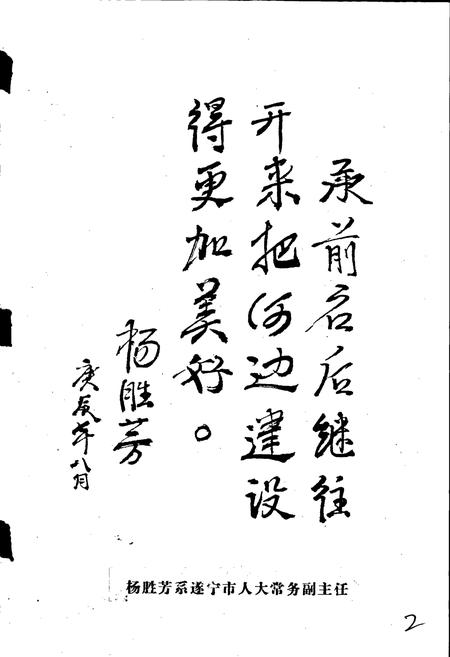 承前启后继往
开来把河边建设
得更加美好。
杨胜芳
庚辰年八月
杨胜芳系遂宁市人大常务副主任
2